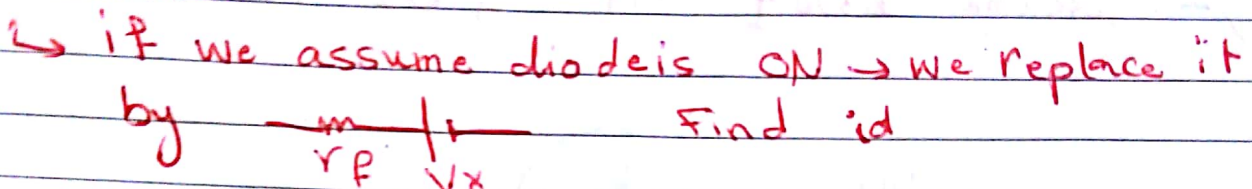 ↳ if we assume diode is ON → we replace it
by Find id
rf Vx